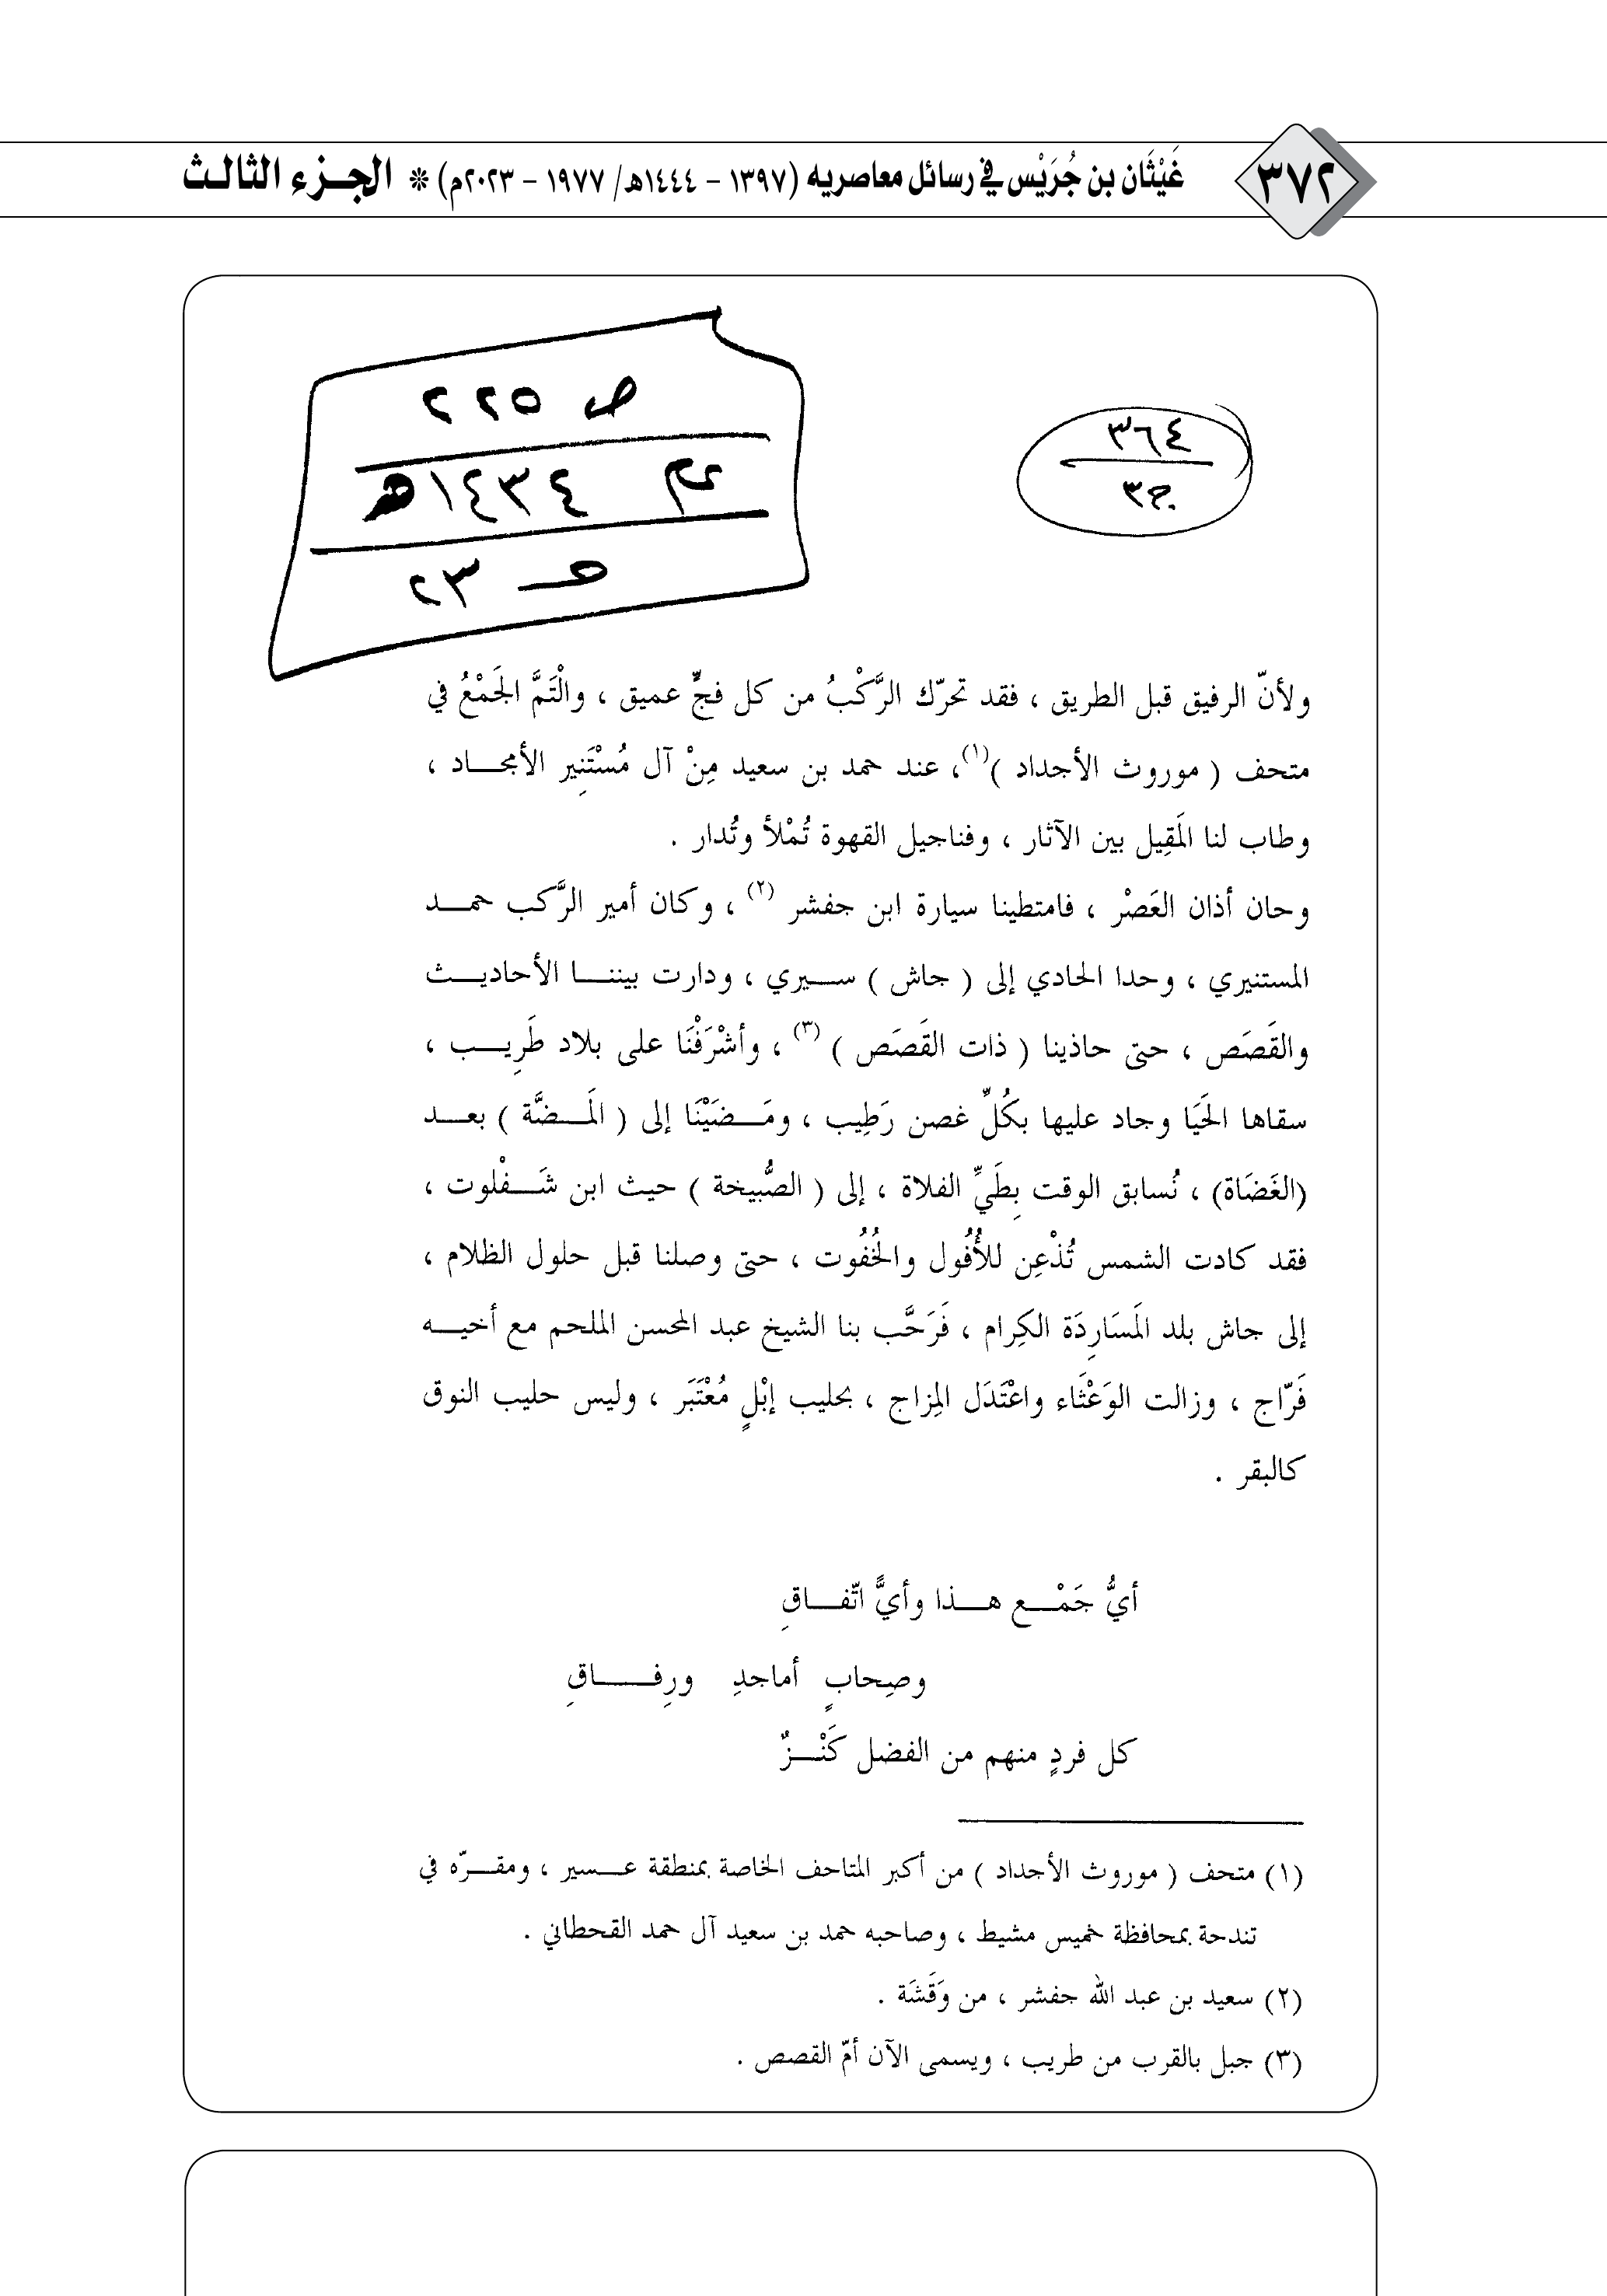 ٣٧٢
غَيْثَان بن جُرَيْس في رسائل معاصريه (١٣٩٧ - ١٤٤٤هـ/ ١٩٧٧ - ٢٠٢٣م) * الجزء الثالث
٣٦٤
ج٣
ص ٢٢٥
١٤٣٤هـ
٢٣
ولأنّ الرفيق قبل الطريق ، فقد تحرّك الرَّكْبُ من كل فجٍّ عميق ، والْتَمَّ الجَمْعُ في
متحف ( موروث الأجداد )(١)، عند حمد بن سعيد مِنْ آل مُسْتَنِير الأمجاد ،
وطاب لنا المَقِيل بين الآثار ، وفناجيل القهوة تُمْلأ وتُدار .
وحان أذان العَصْر ، فامتطينا سيارة ابن جفشر (٢) ، وكان أمير الرَّكب حمد
المستنيري ، وحدا الحادي إلى ( جاش ) سيري ، ودارت بيننا الأحاديث
والقَصَص ، حتى حاذينا ( ذات القَصَص ) (٣) ، وأشْرَفْنَا على بلاد طَرِيب ،
سقاها الحَيَا وجاد عليها بكُلِّ غصن رَطِيب ، ومَضَيْنَا إلى ( المَضَّة ) بعد
(الغَضَاة) ، نُسابق الوقت بِطَيِّ الفلاة ، إلى ( الصُّبيخة ) حيث ابن شَفْلوت ،
فقد كادت الشمس تُذْعِن للأُفُول والخُفُوت ، حتى وصلنا قبل حلول الظلام ،
إلى جاش بلد المَسَارِدَة الكِرام ، فَرَحَّب بنا الشيخ عبد المحسن الملحم مع أخيه
فَرّاج ، وزالت الوَعْثَاء واعْتَدَل المِزاج ، بحليب إبْلٍ مُعْتَبَر ، وليس حليب النوق
كالبقر .
أيُّ جَمْع هذا وأيَّ اتّفاقِ
وصِحابٍ أماجدِ ورِفاقِ
كل فردٍ منهم من الفضل كَنْزٌ
(١) متحف ( موروث الأجداد ) من أكبر المتاحف الخاصة بمنطقة عسير ، ومقرّه في
تندحة بمحافظة خميس مشيط ، وصاحبه حمد بن سعيد آل حمد القحطاني .
(٢) سعيد بن عبد الله جفشر ، من وَقَشَة .
(٣) جبل بالقرب من طريب ، ويسمى الآن أمّ القصص .